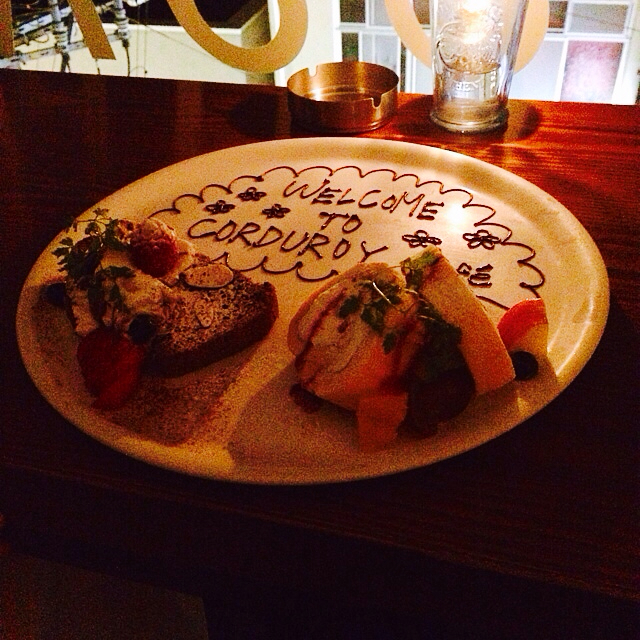 WELCOME
TO
CORDUROY